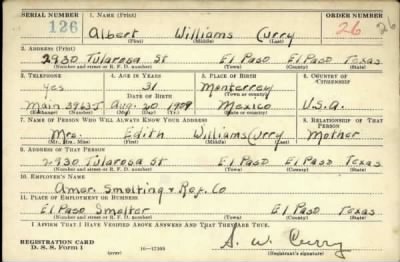 SERIAL NUMBER 1. NAME (Print) ORDER NUMBER
126 Albert Williams Curry 26 26
(First) (Middle) (Last)
2. ADDRESS (Print)
2930 Tularosa St El Paso El Paso Texas
(Number and street or R. F. D. number) (Town) (County) (State)
3. TELEPHONE 4. AGE IN YEARS 5. PLACE OF BIRTH 6. COUNTRY OF CITIZENSHIP
Yes 31 Monterrey
DATE OF BIRTH (Town or county)
Main Aug. 20 1909 Mexico U.S.A.
(Exchange) (Number) (Mo.) (Day) (Yr.) (State or country)
7. NAME OF PERSON WHO WILL ALWAYS KNOW YOUR ADDRESS 8. RELATIONSHIP OF THAT PERSON
Mrs. Edith Williams Curry Mother
(Mr., Mrs., Miss) (First) (Middle) (Last)
9. ADDRESS OF THAT PERSON
2930 Tularosa St El Paso El Paso Texas
(Number and street or R. F. D. number) (Town) (County) (State)
10. EMPLOYER'S NAME
Amer. Smelting & Ref. Co
11. PLACE OF EMPLOYMENT OR BUSINESS
El Paso Smelter El Paso Texas
(Number and street or R. F. D. number) (Town) (County) (State)
I AFFIRM THAT I HAVE VERIFIED ABOVE ANSWERS AND THAT THEY ARE TRUE.
REGISTRATION CARD
D. S. S. Form 1 (over) 16-17105 (Registrant's signature)